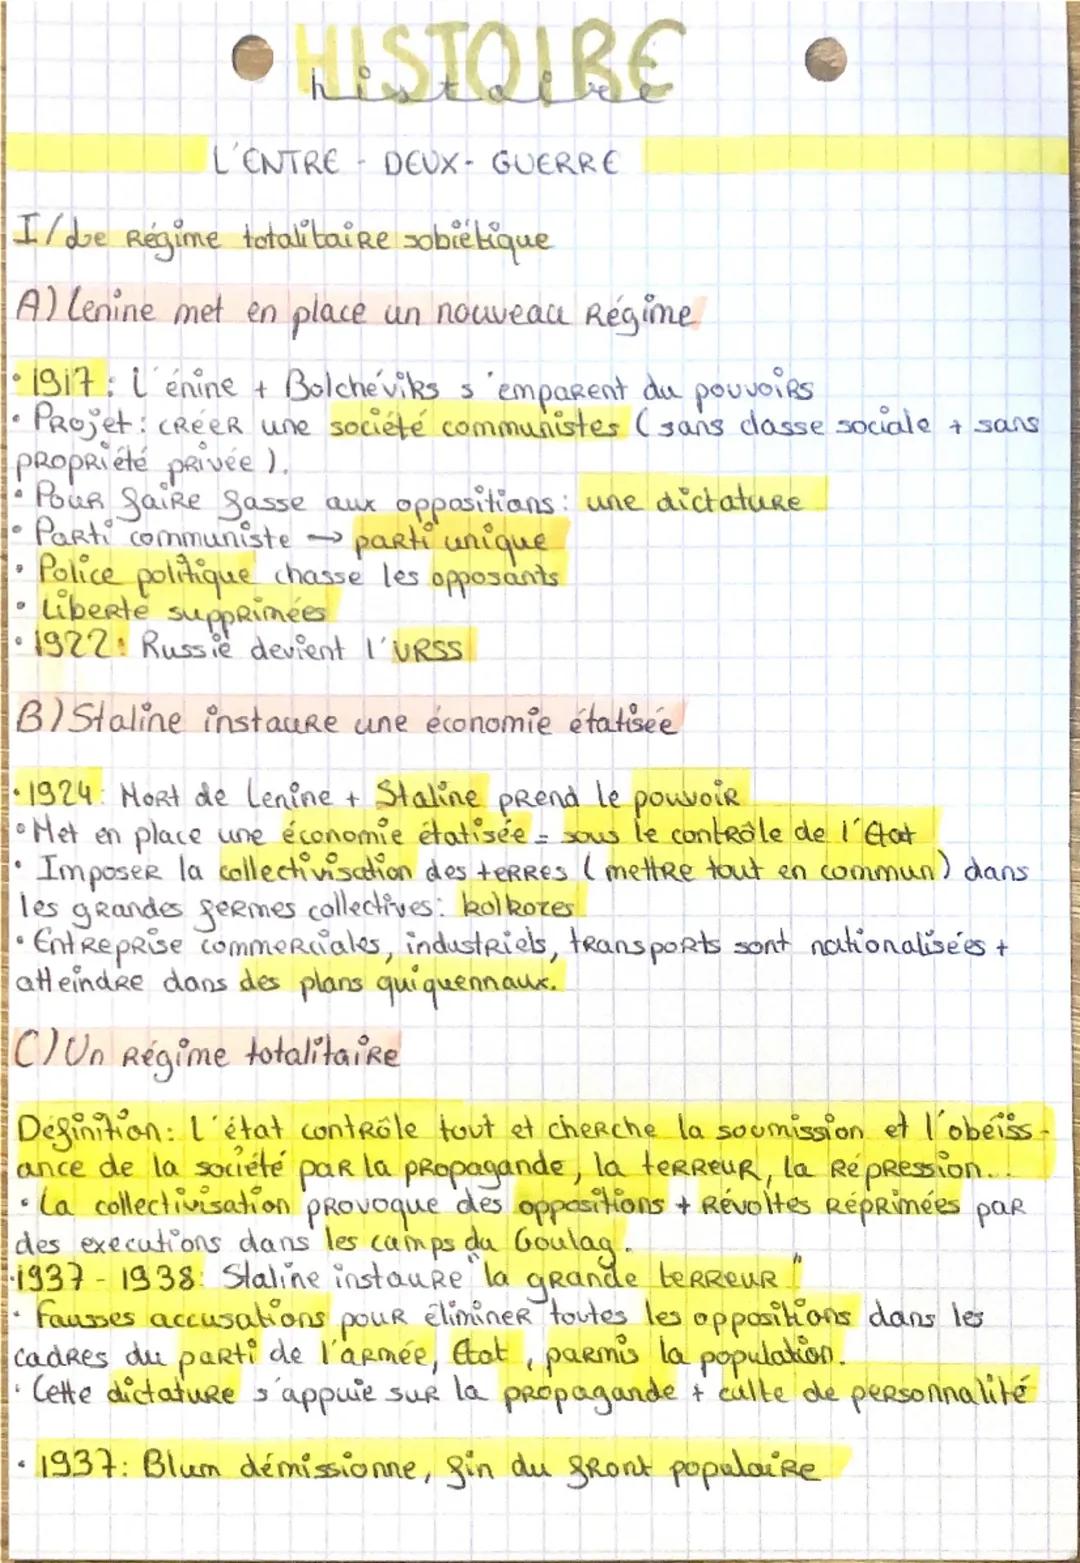 HISTOIRE
histoire
L'ENTRE-DEUX-GUERRE
I/ Le Régime totalitaire sobiétique
A) Lenine met en place un nouveau Régime
• 1917 : L'énine + Bolchéviks s'emparent du pouvoirs
• Projet : créer une société communistes (sans classe sociale + sans
propriété privée).
• Pour faire fasse aux oppositions : une dictature
• Parti communiste → parti unique
• Police politique chasse les opposants
• Liberté supprimées
• 1922 : Russie devient l'URSS
B) Staline instaure une économie étatisée
• 1924 : Mort de Lenine + Staline prend le pouvoir
• Met en place une économie étatisée = sous le contrôle de l'État
• Imposer la collectivisation des terres (mettre tout en commun) dans
les grandes fermes collectives : kolkozes
• Entreprise commerciales, industriels, transports sont nationalisées +
atteindre dans des plans quiquennaux.
C) Un Régime totalitaire
Définition : L'état contrôle tout et cherche la soumission et l'obéiss-
ance de la société par la propagande, la terreur, la répression...
• La collectivisation provoque des oppositions + Révoltes Réprimées par
des executions dans les camps du Goulag.
• 1937 - 1938 : Staline instaure "la grande terreur"
• Fausses accusations pour éliminer toutes les oppositions dans les
cadres du parti de l'armée, État, parmis la population.
• Cette dictature s'appuie sur la propagande + culte de personnalité
• 1937 : Blum démissionne, fin du front populaire